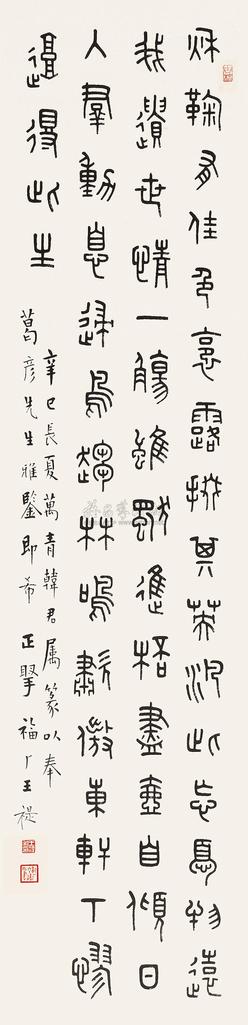 秌鞠有佳色裛露掇其英汎此忘憂物遠
我遺世情一觴雖獨進桮盡壺自傾日
人羣動息歸鳥趨林鳴嘯傲東軒丅聊
復得此生
辛巳長夏萬青韓君屬篆以奉
葛彥先生雅鑒即希 正擘 福厂王禔